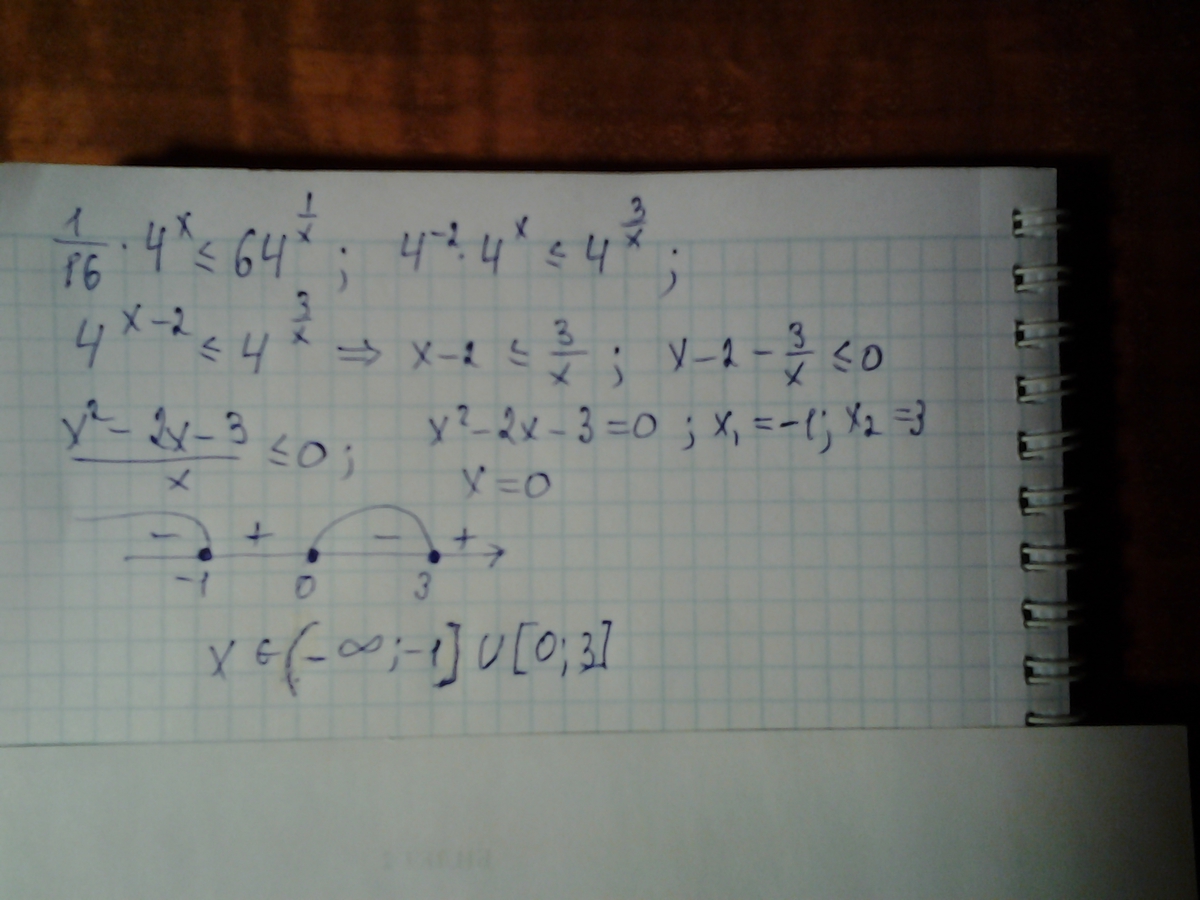 1/16 · 4^x ≤ 64^(1/x) ; 4^(-2) · 4^x ≤ 4^(3/x) ;
4^(x-2) ≤ 4^(3/x) ⇒ x-2 ≤ 3/x ; x-2-3/x ≤ 0
(x²-2x-3)/x ≤ 0 ; x²-2x-3=0 ; x₁=-1; x₂=3
x=0
- + - +
-1 0 3
x ∈ (-∞; -1] ∪ [0; 3]